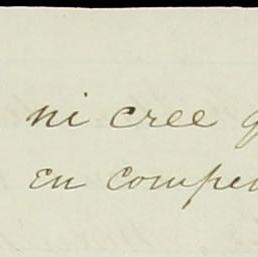 ni cree q
en compe